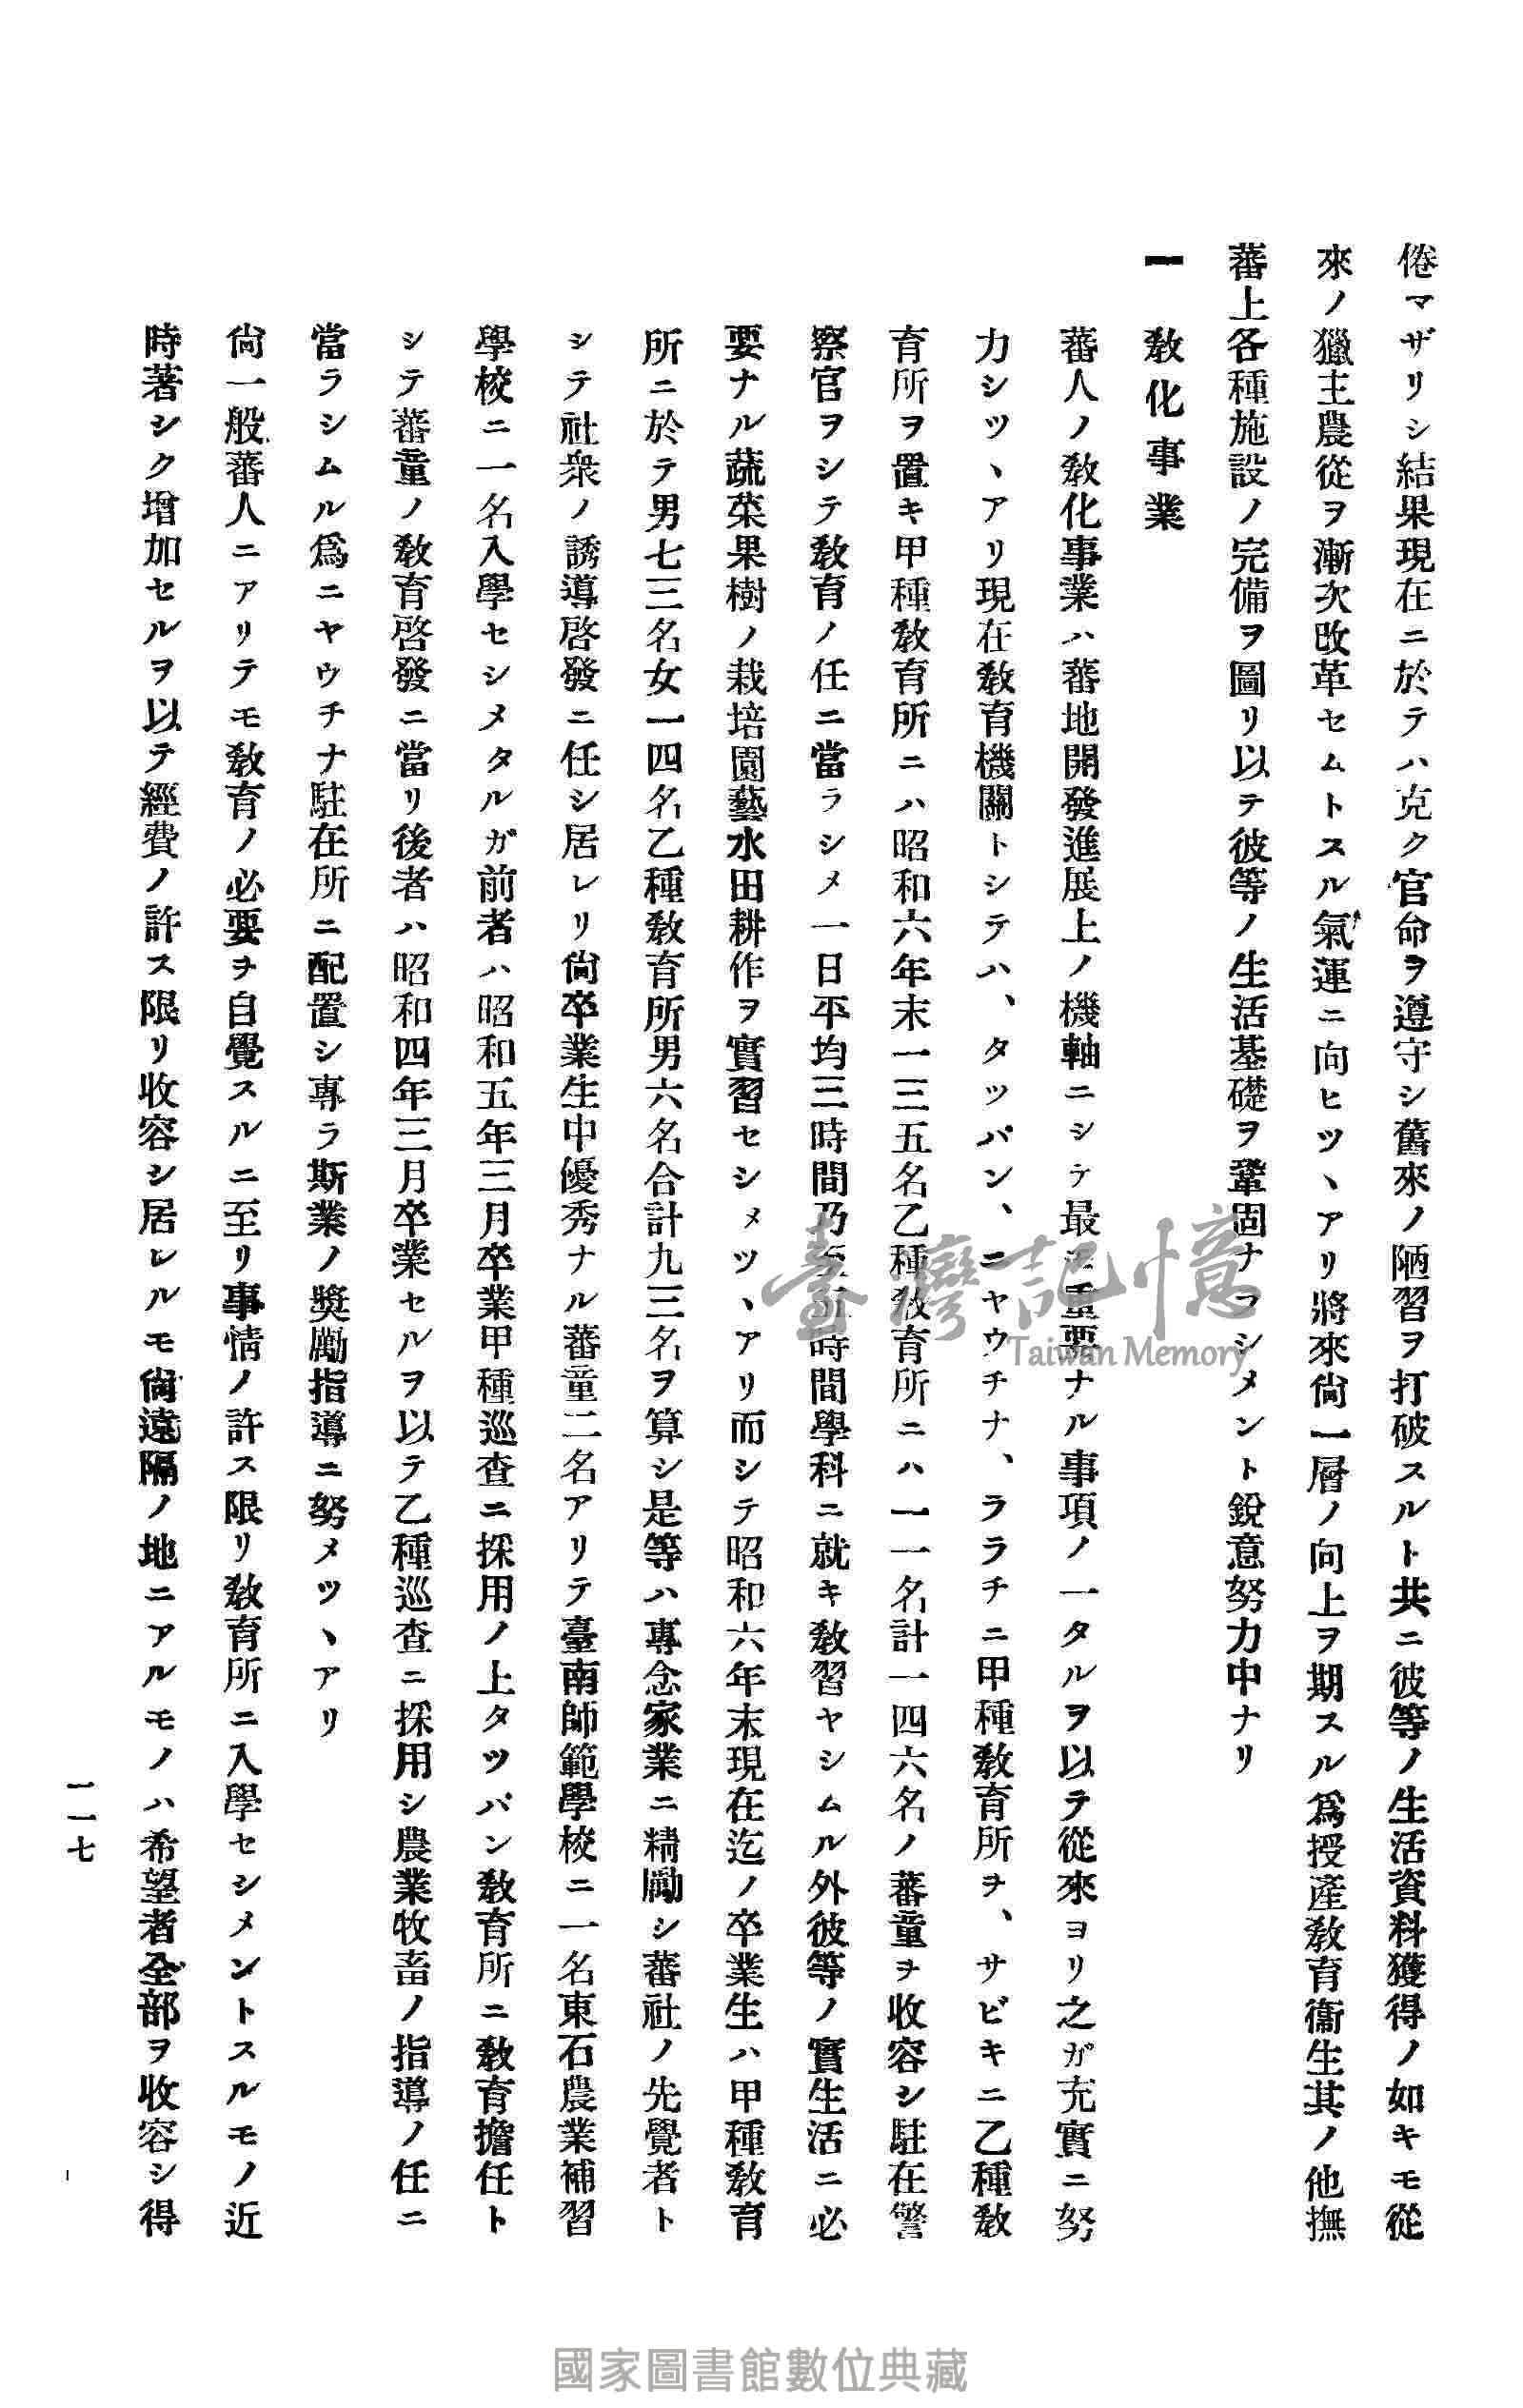 倦マザリシ結果現在ニ於テハ克ク官命ヲ遵守シ舊來ノ陋習ヲ打破スルト共ニ彼等ノ生活資料獲得ノ如キモ從
來ノ獵主農從ヲ漸次改革セムトスル氣運ニ向ヒツヽアリ將來尙一層ノ向上ヲ期スル爲授產敎育衞生其ノ他撫
蕃上各種施設ノ完備ヲ圖リ以テ彼等ノ生活基礎ヲ鞏固ナラシメント銳意努力中ナリ
一 敎化事業
蕃人ノ敎化事業ハ蕃地開發進展上ノ機軸ニシテ最モ重要ナル事項ノ一タルヲ以テ從來ヨリ之ガ充實ニ努
力シツヽアリ現在敎育機關トシテハ、タツパン、ニヤウチナ、ララチニ甲種敎育所ヲ、サビキニ乙種敎
育所ヲ置キ甲種敎育所ニハ昭和六年末一三五名乙種敎育所ニハ一一名計一四六名ノ蕃童ヲ收容シ駐在警
察官ヲシテ敎育ノ任ニ當ラシメ一日平均三時間乃至五時間學科ニ就キ敎習ヤシムル外彼等ノ實生活ニ必
要ナル蔬菜果樹ノ栽培園藝水田耕作ヲ實習セシメツヽアリ而シテ昭和六年末現在迄ノ卒業生ハ甲種敎育
所ニ於テ男七三名女一四名乙種敎育所男六名合計九三名ヲ算シ是等ハ專念家業ニ精勵シ蕃社ノ先覺者ト
シテ社衆ノ誘導啓發ニ任シ居レリ尙卒業生中優秀ナル蕃童二名アリテ臺南師範學校ニ一名東石農業補習
學校ニ一名入學セシメタルガ前者ハ昭和五年三月卒業甲種巡査ニ採用ノ上タツパン敎育所ニ敎育擔任ト
シテ蕃童ノ敎育啓發ニ當リ後者ハ昭和四年三月卒業セルヲ以テ乙種巡査ニ採用シ農業牧畜ノ指導ノ任ニ
當ラシムル爲ニヤウチナ駐在所ニ配置シ專ラ斯業ノ獎勵指導ニ努メツヽアリ
尙一般蕃人ニアリテモ敎育ノ必要ヲ自覺スルニ至リ事情ノ許ス限リ敎育所ニ入學セシメントスルモノ近
時著シク增加セルヲ以テ經費ノ許ス限リ收容シ居レルモ尙遠隔ノ地ニアルモノハ希望者全部ヲ收容シ得
一一七
臺灣記憶
Taiwan Memory
國家圖書館數位典藏